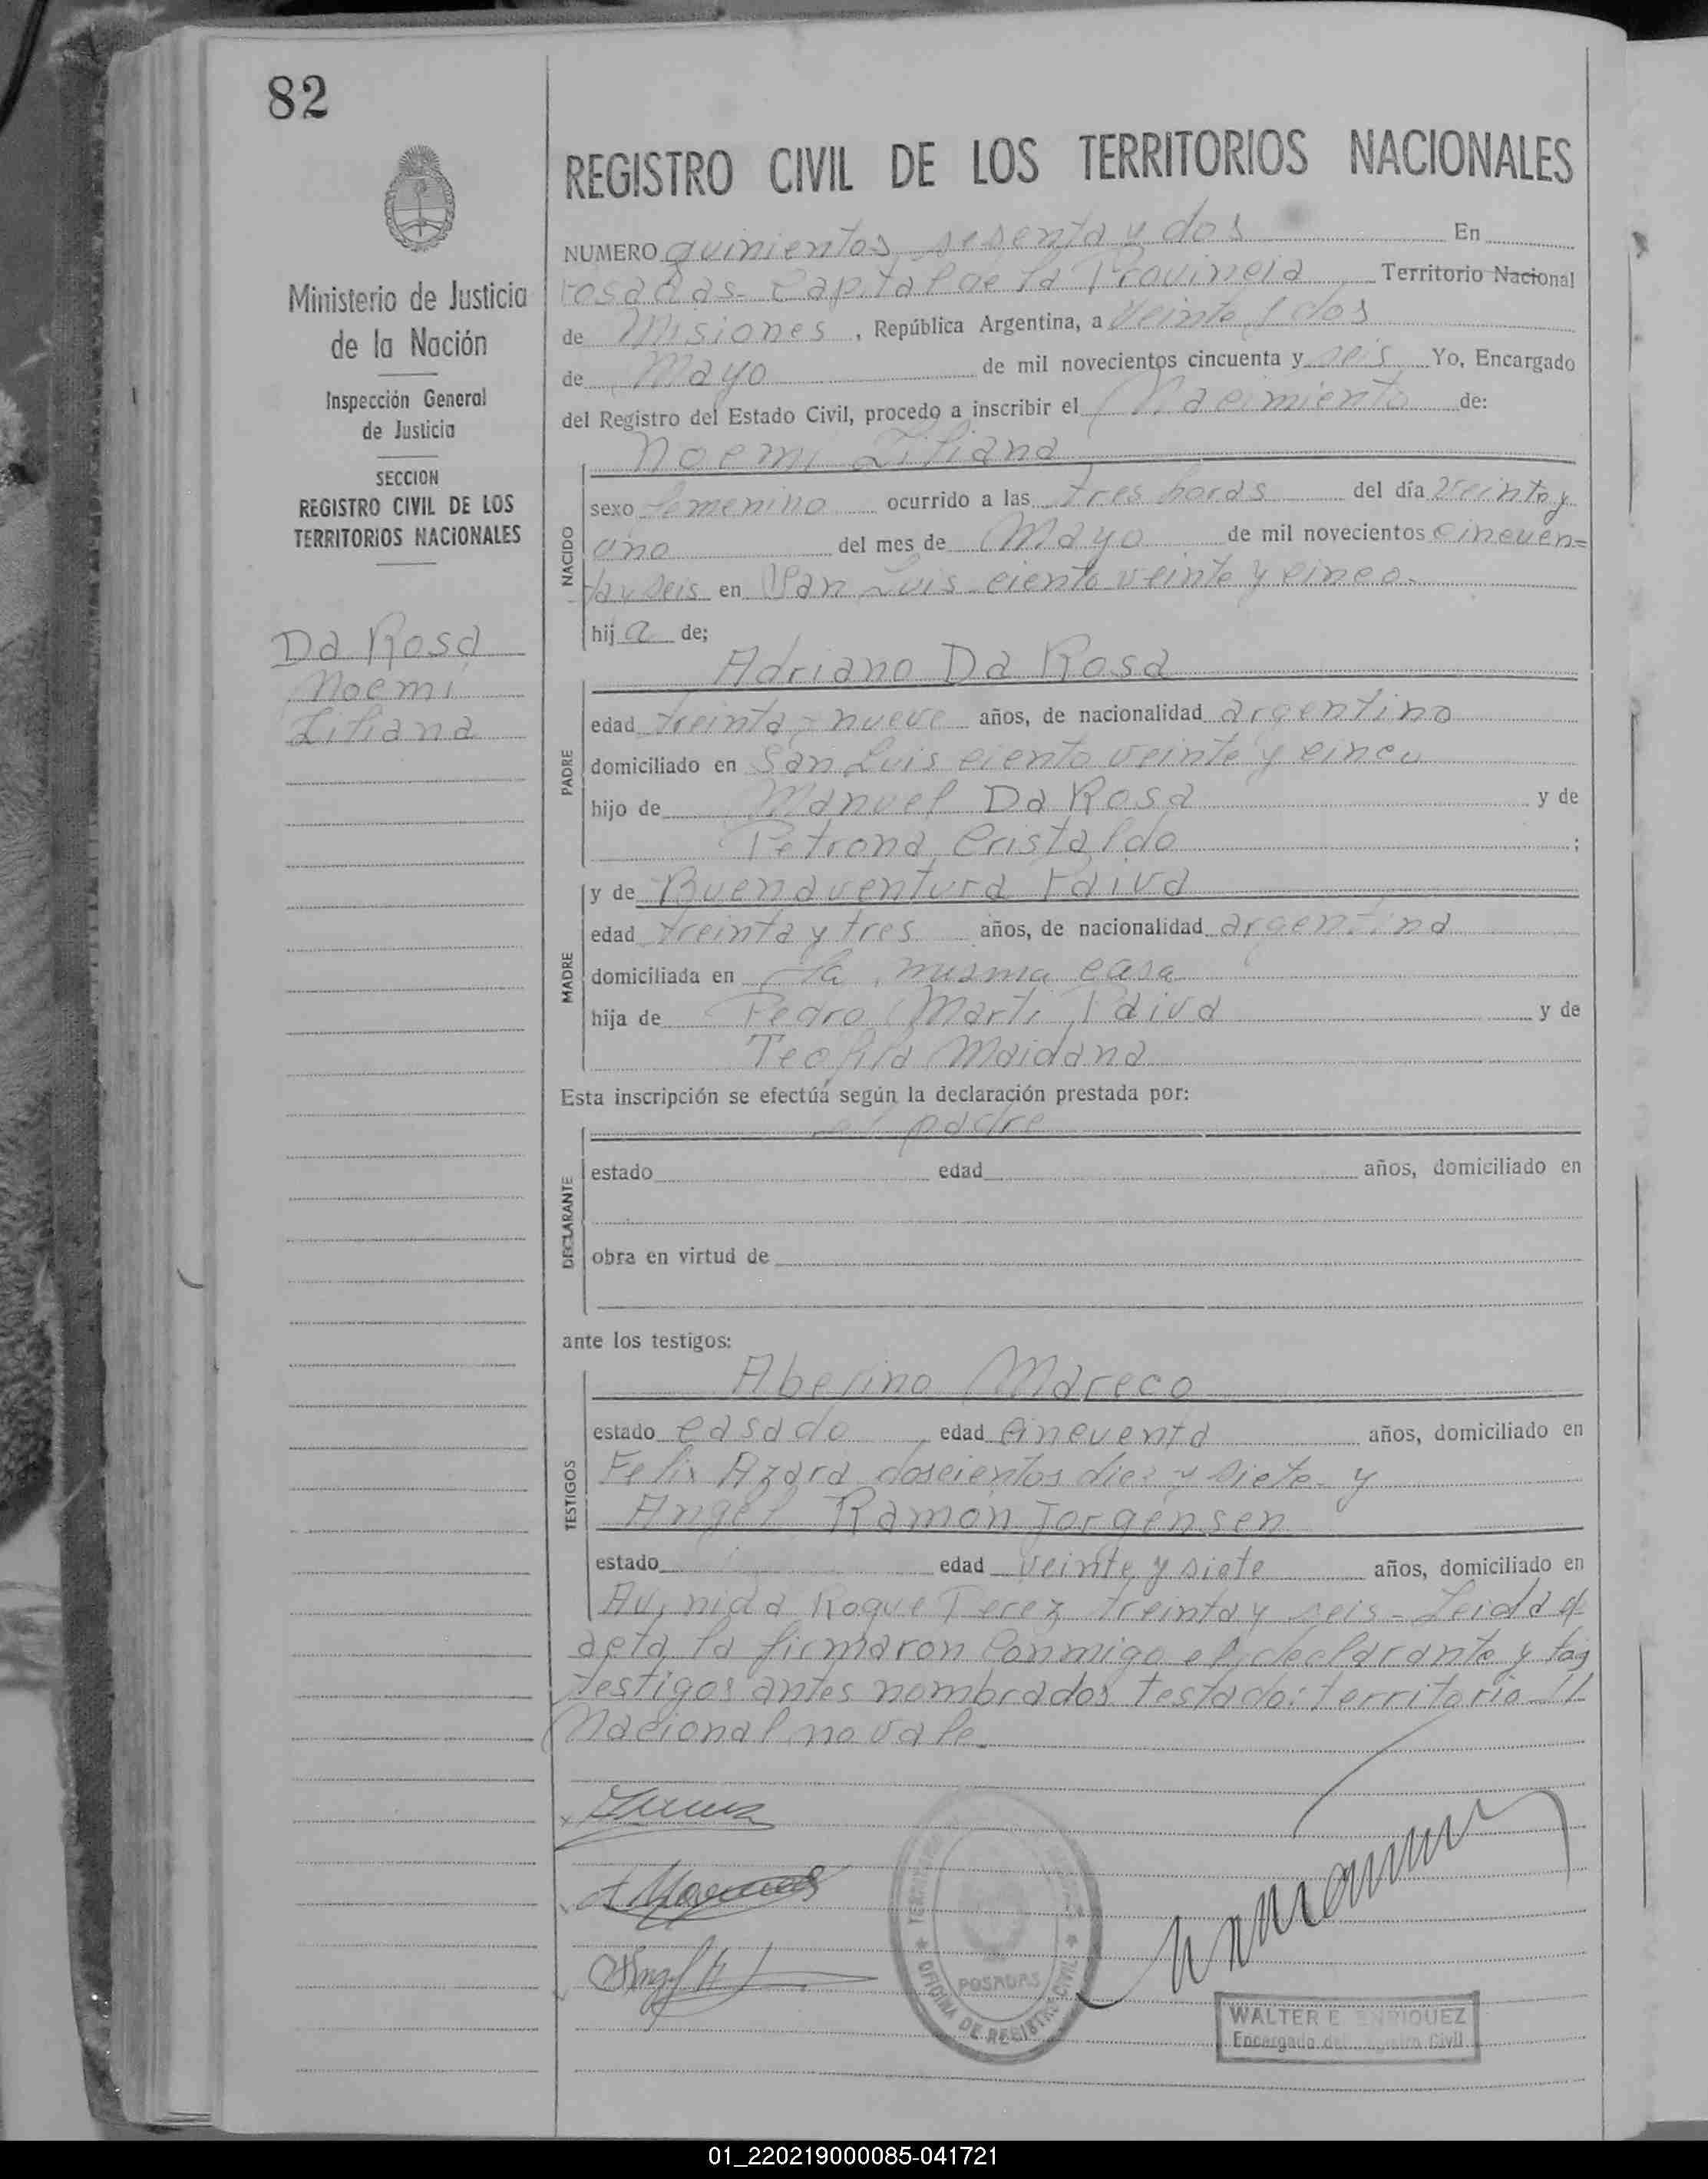 82
REGISTRO CIVIL DE LOS TERRITORIOS NACIONALES
Ministerio de Justicia
de la Nación
Inspección General
de Justicia
SECCION
REGISTRO CIVIL DE LOS
TERRITORIOS NACIONALES
Da Rosa
Noemi
Liliana
NUMERO quinientos sesenta y dos En
Posadas- Capital de la Provincia Territorio Nacional
de Misiones, República Argentina, a veinte y dos
de Mayo de mil novecientos cincuenta y seis Yo, Encargado
del Registro del Estado Civil, procedo a inscribir el Nacimiento de:
Noemi Liliana
NACIDO
sexo femenino ocurrido a las tres horas del día veinte y
uno del mes de Mayo de mil novecientos cincuen=
ta y seis en San Luis ciento veinte y cinco.
hij a de;
Adriano Da Rosa
PADRE
edad treinta y nueve años, de nacionalidad argentino
domiciliado en San Luis ciento veinte y cinco
hijo de Manuel Da Rosa y de
Petrona Cristaldo ;
y de Buenaventura Paiva
MADRE
edad treinta y tres años, de nacionalidad argentina
domiciliada en la misma casa
hija de Pedro Marti Paiva y de
Teofila Maidana
Esta inscripción se efectúa según la declaración prestada por:
el padre
DECLARANTE
estado edad años, domiciliado en
obra en virtud de
ante los testigos:
Abelino Mareco
TESTIGOS
estado casado edad cincuenta años, domiciliado en
Felix Azara doscientos diez y siete- y
Angel Ramon Jorgensen
estado edad veinte y siete años, domiciliado en
Avenida Roque Perez treinta y seis- Leida el
acta la firmaron conmigo el declarante y los
testigos antes nombrados testado: territorio
Nacional no vale.
POSADAS
OFICINA DE REGISTRO CIVIL
WALTER E. ENRIQUEZ
Encargado del Registro Civil
01_220219000085-041721